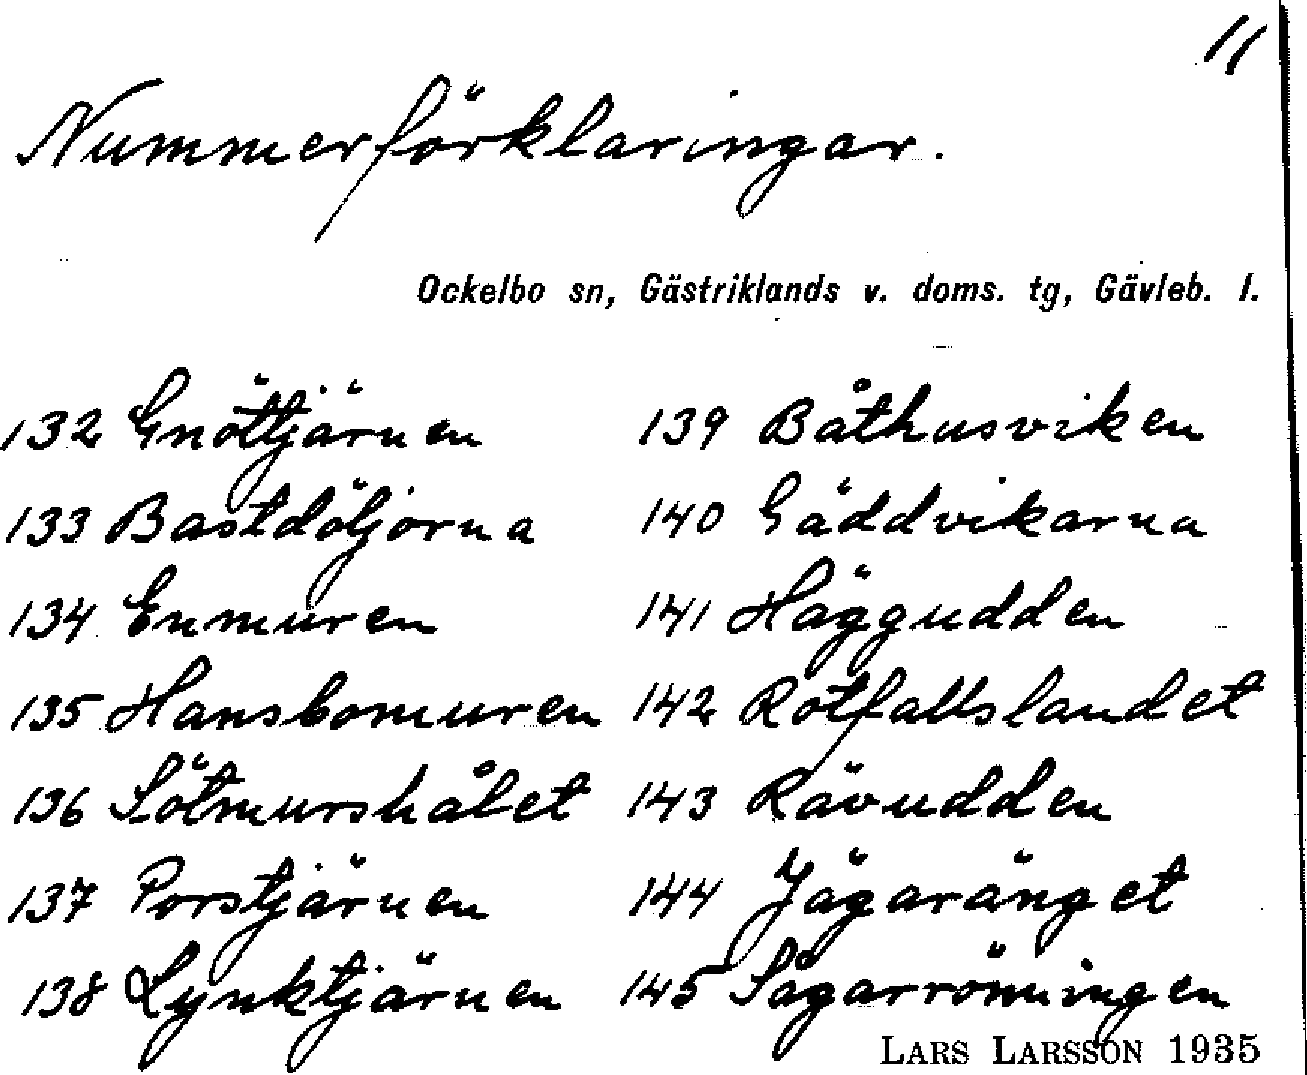 11
Nummerförklaringar.
Ockelbo sn, Gästriklands v. doms. tg, Gävleb. l.
132 Gnöttjärnen
133 Bastdöljorna
134 Enmuren
135 Hansbomuren
136 Sötmurshålet
137 Porstjärnen
138 Lynktjärnen
139 Båthusviken
140 Gäddvikarna
141 Häggudden
142 Rotfallslandet
143 Rävudden
144 Jägaränget
145 Sågarrönningen
LARS LARSSON 1935